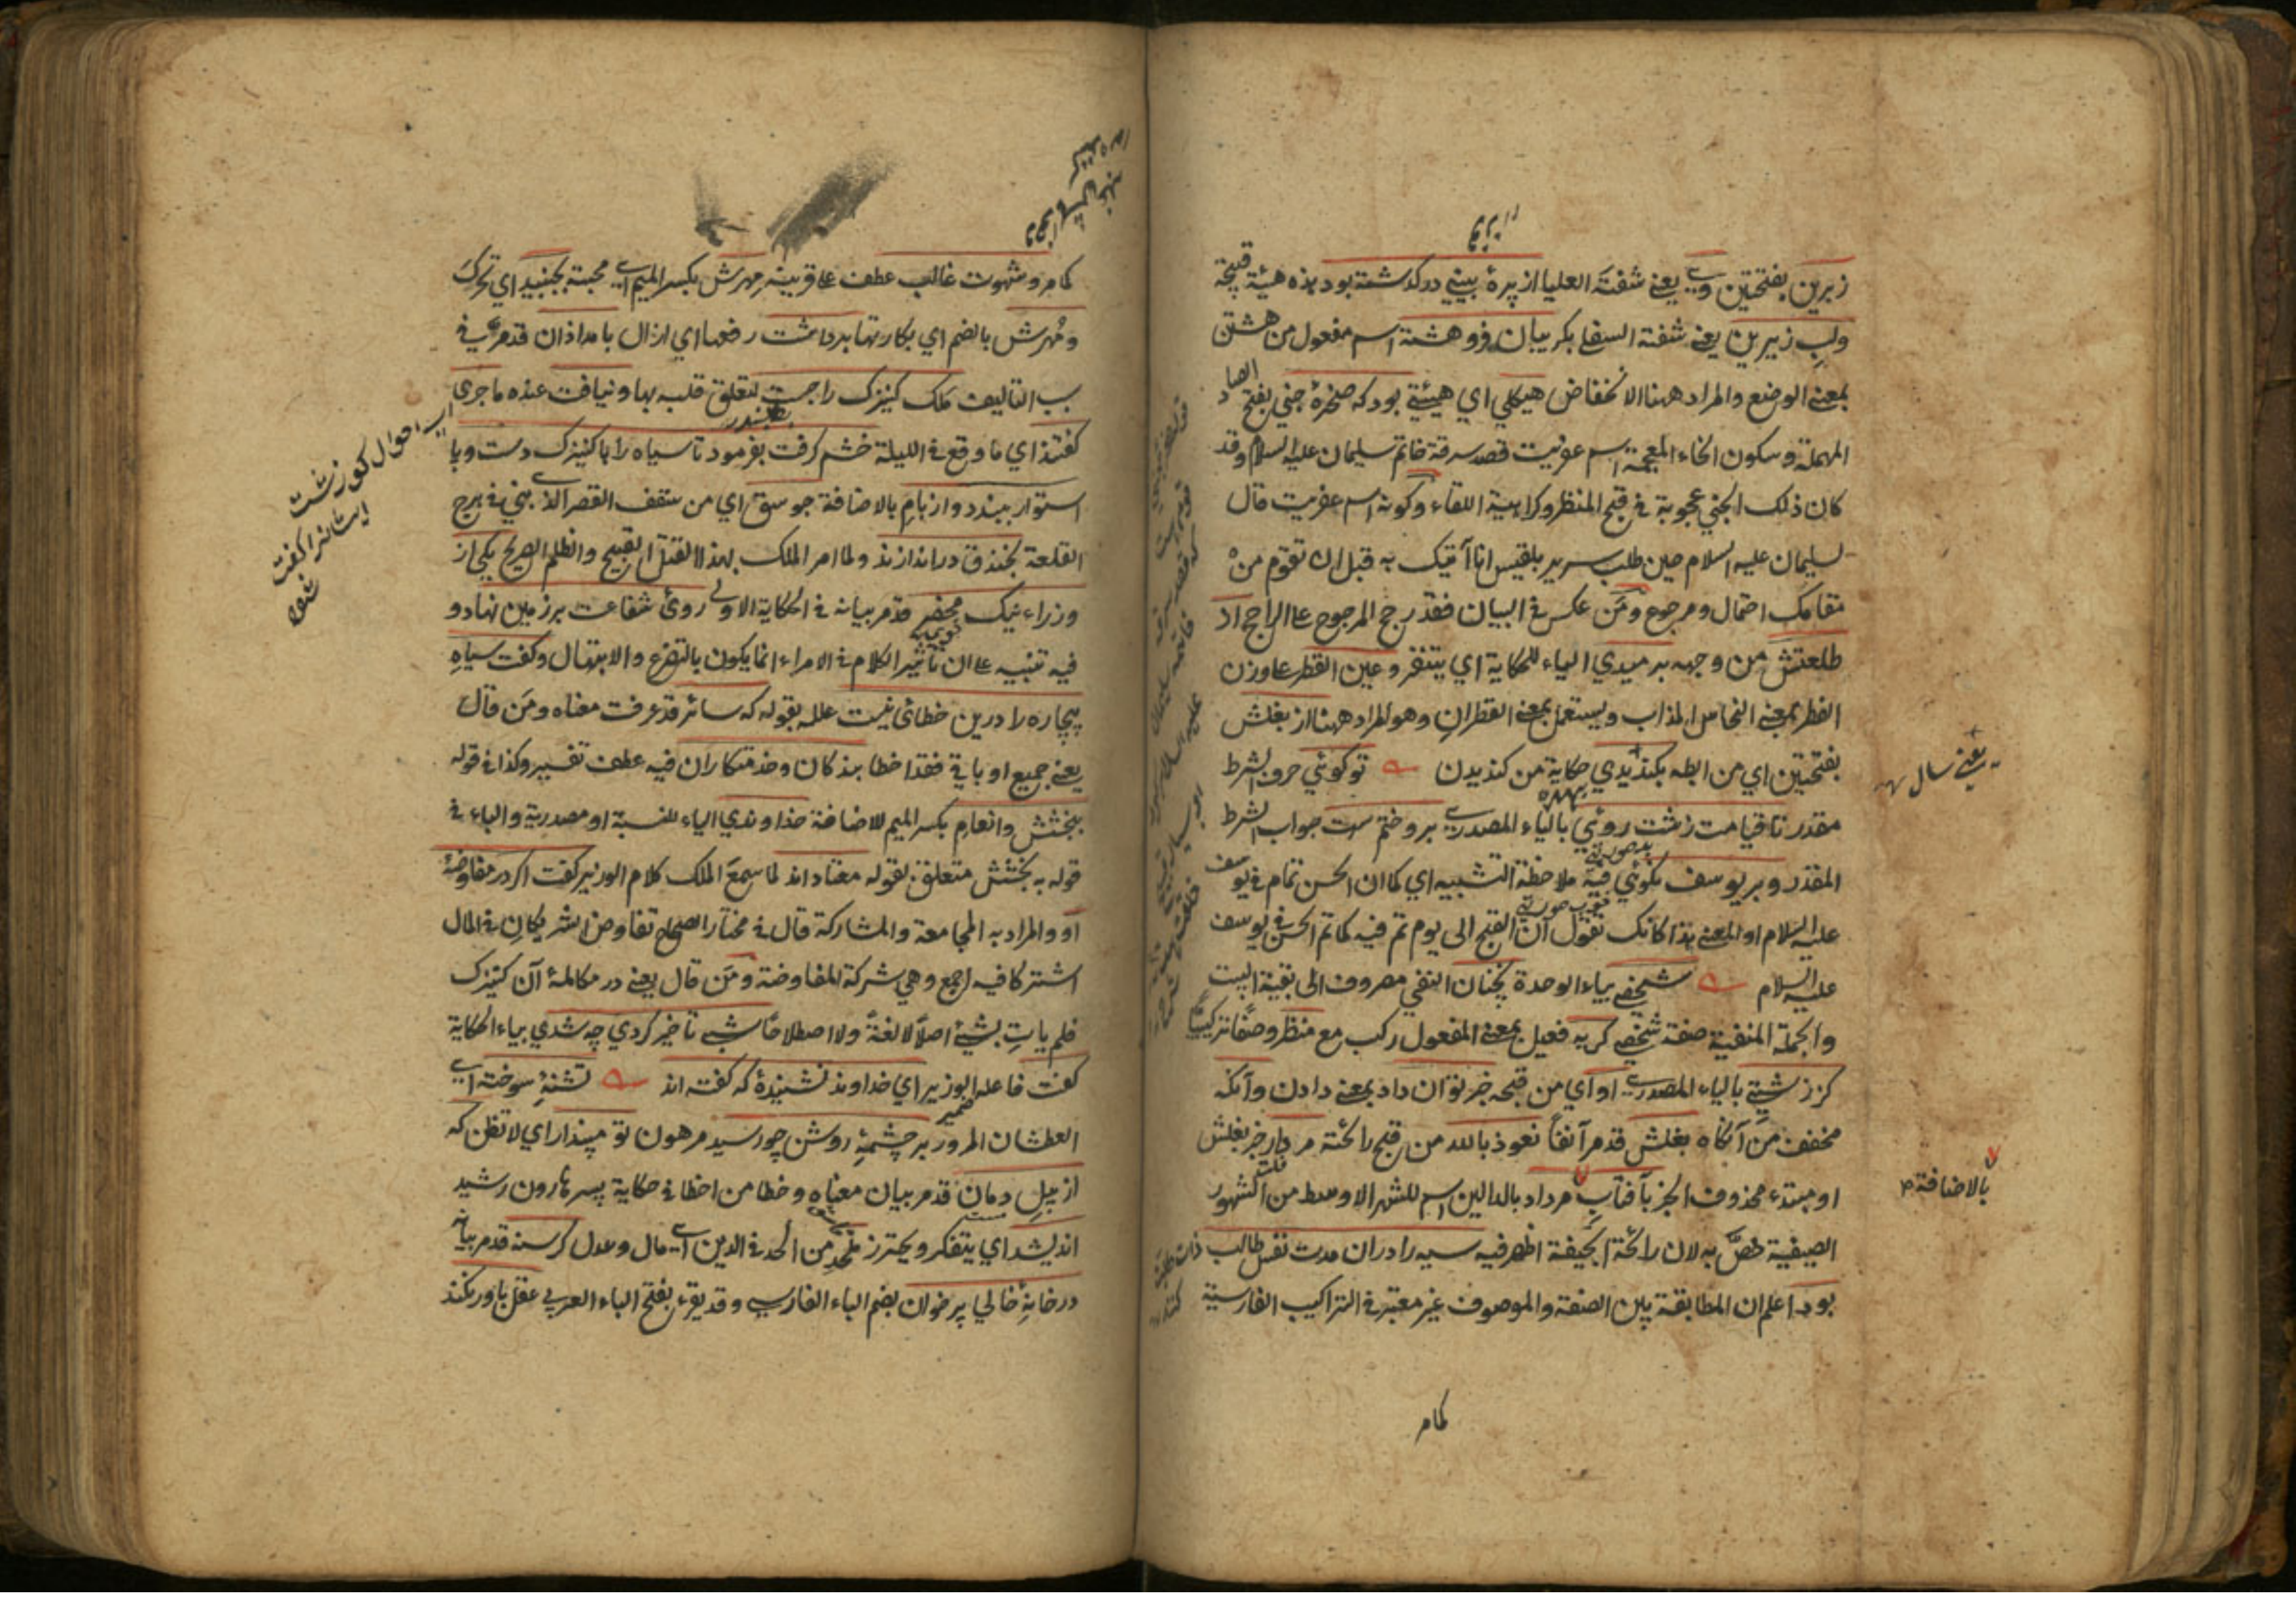 زبرين بفتحتين وي يعني شفته العليا از پرۀ بيني دركذشته بود هذه هيئة قبيحة
ولب زيرين يعني شفته السفلى بكريبان فروهشته اسم مفعول من هشتن
بمعنى الوضع والمراد ههنا الانخفاض هيكلي اي هيئتي بود كه صخرۀ جني بفتح الصاد
المهملة وسكون الخاء المعجمة اسم عفريت قصد سرقة خاتم سليمان عليه السلام وقد
كان ذلك الجني عجوبة في قبح المنظر وكراهية اللقاء وكونه اسم عفريت قال
لسليمان عليه السلام حين طلب سرير بلقيس انا آتيك به قبل ان تقوم من
مقامك احتمال مرجوح ومن عكس في البيان فقد رجح المرجوح على الراجح از
طلعتش من وجهه برميدي الياء للحكاية اي يتنفر وعين القطر على وزن
الفطر بمعنى النحاس المذاب ويستعمل بمعنى القطران وهو المراد ههنا از بغلش
بفتحتين اي من ابطه بكنديدي حكاية من كنديدن توكوئي حرف الشرط
مقدر تا قيامت زشت روئي بالياء المصدري برو ختم ست جواب الشرط
المقدر وبر يوسف نكوئي فيه ملاحظة التشبيه اي كما ان الحسن تمام في يوسف
عليه السلام او المعنى هذا كانك تقول ان القبح الى يوم تم فيه كما تم الحسن في يوسف
عليه السلام شخصي بياء الوحدة نچنان النفي مصروف الى بقية البيت
والجملة المنفية صفة شخصي كريه فعيل بمعنى المفعول ركب مع منظر وصفا تركيبيا
كز زشتي بالياء المصدري او اي من قبحه خبر توان داد بمعنى دادن وآنكه
مخفف من آنكاه بغلش قد مر آنفا نعوذ بالله من قبح رائحته مردار خبر بغلش
او مبتدء محذوف الخبر بآفتاب مرداد بالدالين اسم للشهر الاوسط من الشهور
الصيفية خص به لان رائحة الجيفة اظهر فيه سيه را دران مدت نفس طالب
بود اعلم ان المطابقة بين الصفة والموصوف غير معتبر في التراكيب الفارسية
يعني سال
بالاضافة
كام
كام وشهوت غالب عطف على قرينه مهرش بكسر الميم اي محبته بجنبيد اي تحرك
ومهرش بالضم اي بكارتها برداشت رفعها اي ازال بامدادان قد مر في
سبب التاليف ملك كنيزك را جست لتعلق قلبه بها ونيافت عنده ماجرى
كفتند اي ما وقع في الليلة خشم كرفت بفرمود تا سياه را با كنيزك دست وپا
استوار ببندد واز بام بالاضافة جوسق اي من سقف القصر الذي بني في برج
القلعة بخندق دراندازند ولما امر الملك بهذا القتل القبيح والظلم الصريح يكي از
وزراء نيك محضر قد مر بيانه في الحكاية الاولى روى شفاعت بر زمين نهاد و
فيه تنبيه على ان تأثير الكلام في الامراء انما يكون بالتضرع والابتهال وكفت سياه
بيچاره را درين خطائي نيست علله بقوله كه سائر قد عرفت معناه ومن قال
يعني جميع او باقي فقد اخطا بندكان وخدمتكاران فيه عطف تفسير وكذا في قوله
ببخشش وانعام بكسر الميم للاضافة خداوندي الياء للنسبة او مصدرية والباء في
قوله به بخشش متعلق بقوله معتادند لما سمع الملك كلام الوزير كفت اكر در مفاوضۀ
او والمراد به المجامعة والمشاركة قال في مختار الصحاح تفاوض الشريكان في المال
اشتركا فيه اجمع وهي شركة المفاوضة ومن قال يعني در مكالمۀ آن كنيزك
فلم يات بشئ اصلا لا لغة ولا اصطلاحا شبي تأخير كردي چه شدي بياء الحكاية
كفت فاعله الوزير اي خداوند نشنيدۀ كه كفته اند تشنۀ سوخته اي
العطشان المرور بر چشمۀ روشن چو رسيد مرهون تو مپندار اي لا تظن كه
از پيل دمان قد مر بيان معناه وخطا من اخطا في حكاية پسر هارون رشيد
انديشد اي يتفكر ويحترز ملحد من الحد في الدين اي مال وعدل كرسنه قد مر بيانه
در خانۀ خالي پر خوان بضم الباء الفارسي وقد يقرء بفتح الباء العربي عقل باور نكند
اي احوال كوزشت
ايشانرا كفت